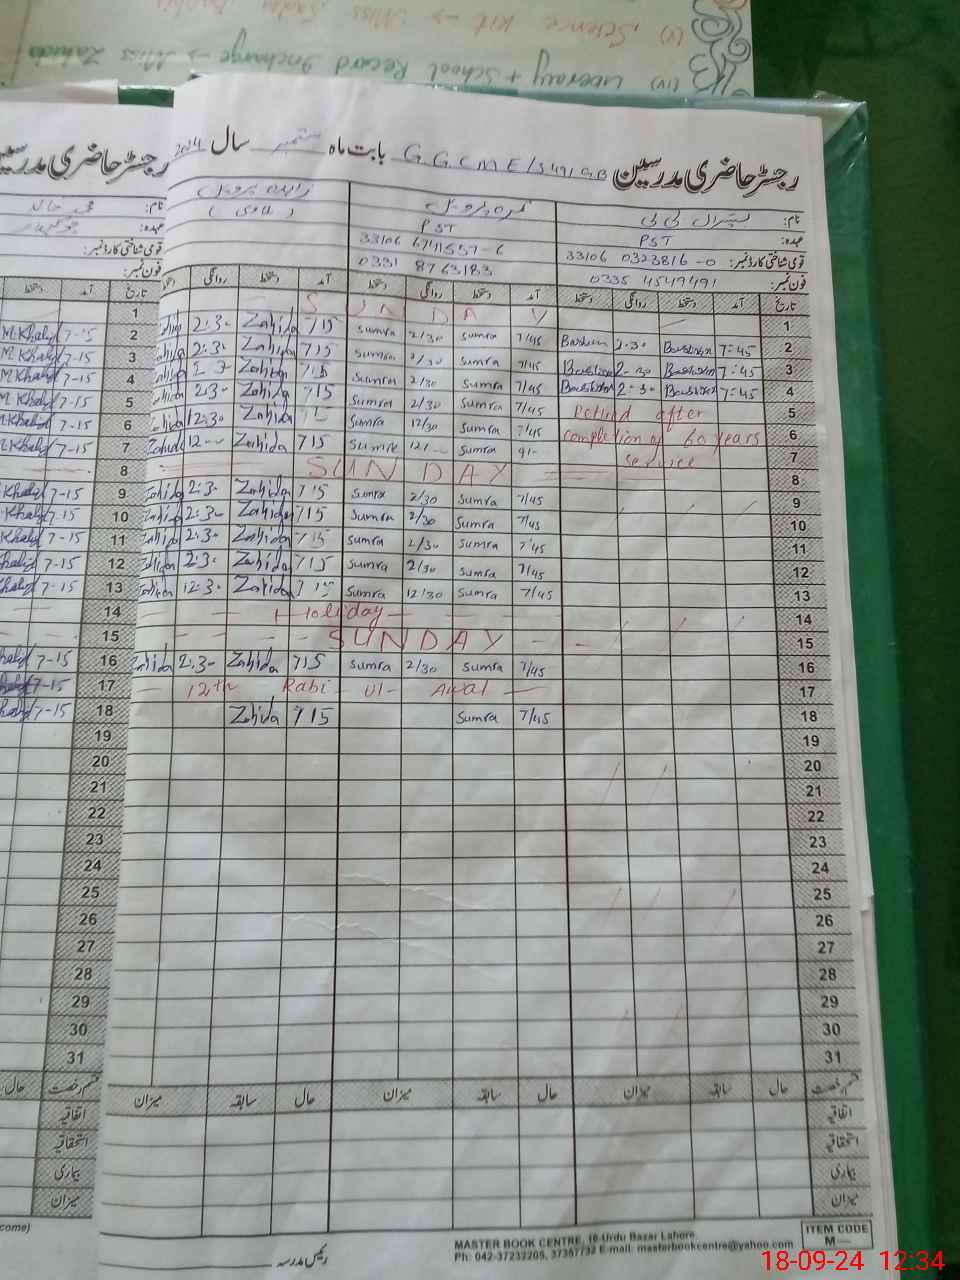 (v) Science Kit → Miss
(iv) Literary + School Record Incharge → Miss Zahida
رجسٹر حاضری مدرسین G.G.CM.E/S 491 GB بابت ماہ ستمبر سال 2024
نام:
عہدہ: PST PST
قومی شناختی کارڈ نمبر: 33106 0323816-0 33106 6741557-6
فون نمبر: 0335 4549491 0331 8763183
تاریخ آمد دستخط روانگی دستخط آمد دستخط روانگی دستخط آمد دستخط روانگی
1 SUNDAY
2 7:45 Bashiran 2-30 7/45 Sumra 2/30 Sumra 715 Zahida 2:3-
3 7:45 Bashiran 2-30 7/45 Sumra 2/30 Sumra 715 Zahida 2:3-
4 7:45 Bashiran 2:30 7/45 Sumra 2/30 Sumra 715 Zahida
5 Retired after 7/45 Sumra 2/30 Sumra Zahida 2:3-
6 completion of 60 years 7/45 Sumra 12/30 Sumra Zahida 12:3-
7 service Sumra Sumra 715 Zahida
8 SUNDAY
9 7/45 Sumra 2/30 Sumra 715 Zahida 2:3-
10 7/45 Sumra 2/30 Sumra 715 Zahida 2:3-
11 7/45 Sumra 2/30 Sumra 715 Zahida 2:3-
12 7/45 Sumra 2/30 Sumra 715 Zahida 2:3-
13 7/45 Sumra 12/30 Sumra 715 Zahida 12:3-
14 Holiday
15 SUNDAY
16 7/45 Sumra 2/30 Sumra 715 Zahida 2:3- Zahida
17 12th Rabi-ul-Awal
18 7/45 Sumra 715 Zahida
19
20
21
22
23
24
25
26
27
28
29
30
31
قسم رخصت حال سابقہ میزان حال سابقہ میزان حال سابقہ میزان
اتفاقیہ
استحقاقیہ
بیماری
میزان
رئیس مدرسہ
MASTER BOOK CENTRE, 16-Urdu Bazar Lahore
Ph: 042-37232205, 37357732 E-mail: masterbookcentre@yahoo.com
ITEM CODE
M—
رجسٹر حاضری مدرسین
نام: محمد خالد
عہدہ:
قومی شناختی کارڈ نمبر:
فون نمبر:
تاریخ آمد دستخط
1
2 7-15 M.Khalid
3 7-15 M.Khalid
4 7-15 M.Khalid
5 7-15 M.Khalid
6 7-15 M.Khalid
7 7-15 M.Khalid
8
9 7-15 Khalid
10 7-15 Khalid
11 7-15 Khalid
12 7-15 Khalid
13 7-15 Khalid
14
15
16 7-15 Khalid
17 7-15
18 7-15 Khalid
19
20
21
22
23
24
25
26
27
28
29
30
31
قسم رخصت حال
اتفاقیہ
استحقاقیہ
بیماری
میزان
18-09-24 12:34